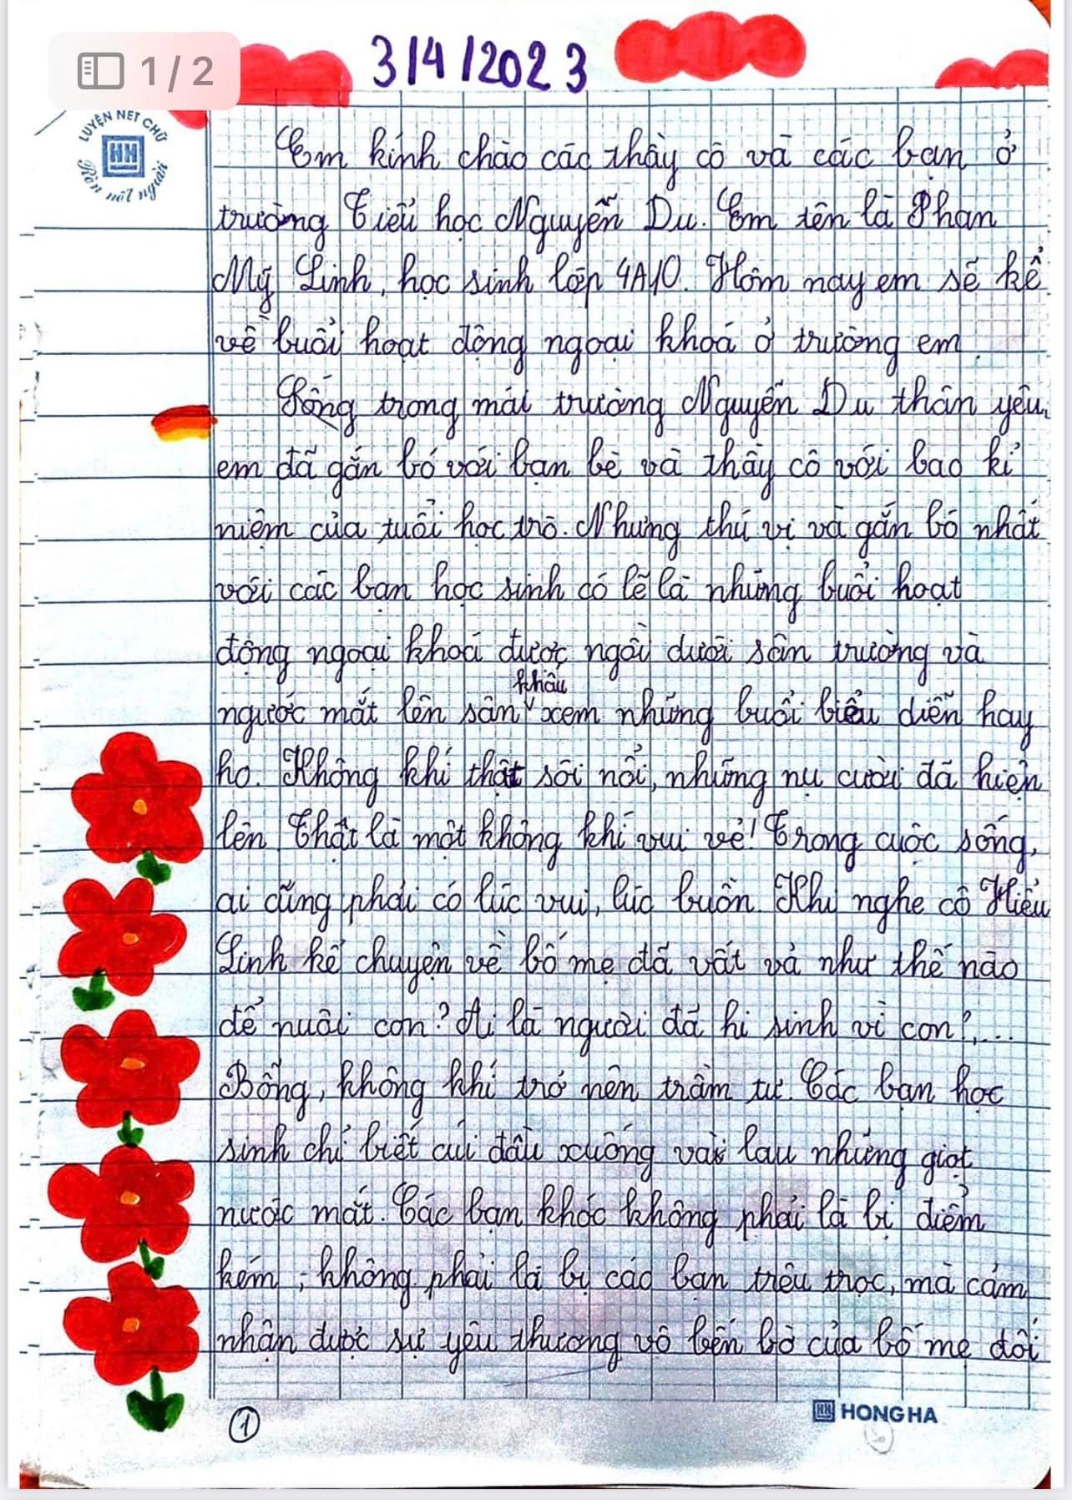 1/2
3/4/2023
LUYỆN NÉT CHỮ
Rèn nết người
Em kính chào các thầy cô và các bạn ở
trường Tiểu học Nguyễn Du. Em tên là Phan
Mỹ Linh, học sinh lớp 4A10. Hôm nay em sẽ kể
về buổi hoạt động ngoại khoá ở trường em.
Sống trong mái trường Nguyễn Du thân yêu,
em đã gắn bó với bạn bè và thầy cô với bao kỉ
niệm của tuổi học trò. Nhưng thú vị và gắn bó nhất
với các bạn học sinh có lẽ là những buổi hoạt
động ngoại khoá được ngồi dưới sân trường và
ngước mắt lên sân khấu xem những buổi biểu diễn hay
ho. Không khí thật sôi nổi, những nụ cười đã hiện
lên. Thật là một không khí vui vẻ! Trong cuộc sống,
ai cũng phải có lúc vui, lúc buồn. Khi nghe cô Hiểu
Linh kể chuyện về bố mẹ đã vất vả như thế nào
để nuôi con? Ai là người đã hi sinh vì con?,...
Bỗng, không khí trở nên trầm tư. Các bạn học
sinh chỉ biết cúi đầu xuống và lau những giọt
nước mắt. Các bạn khóc không phải là bị điểm
kém, không phải là bị các bạn trêu trọc, mà cảm
nhận được sự yêu thương vô bến bờ của bố mẹ đối
1
HH HONG HA